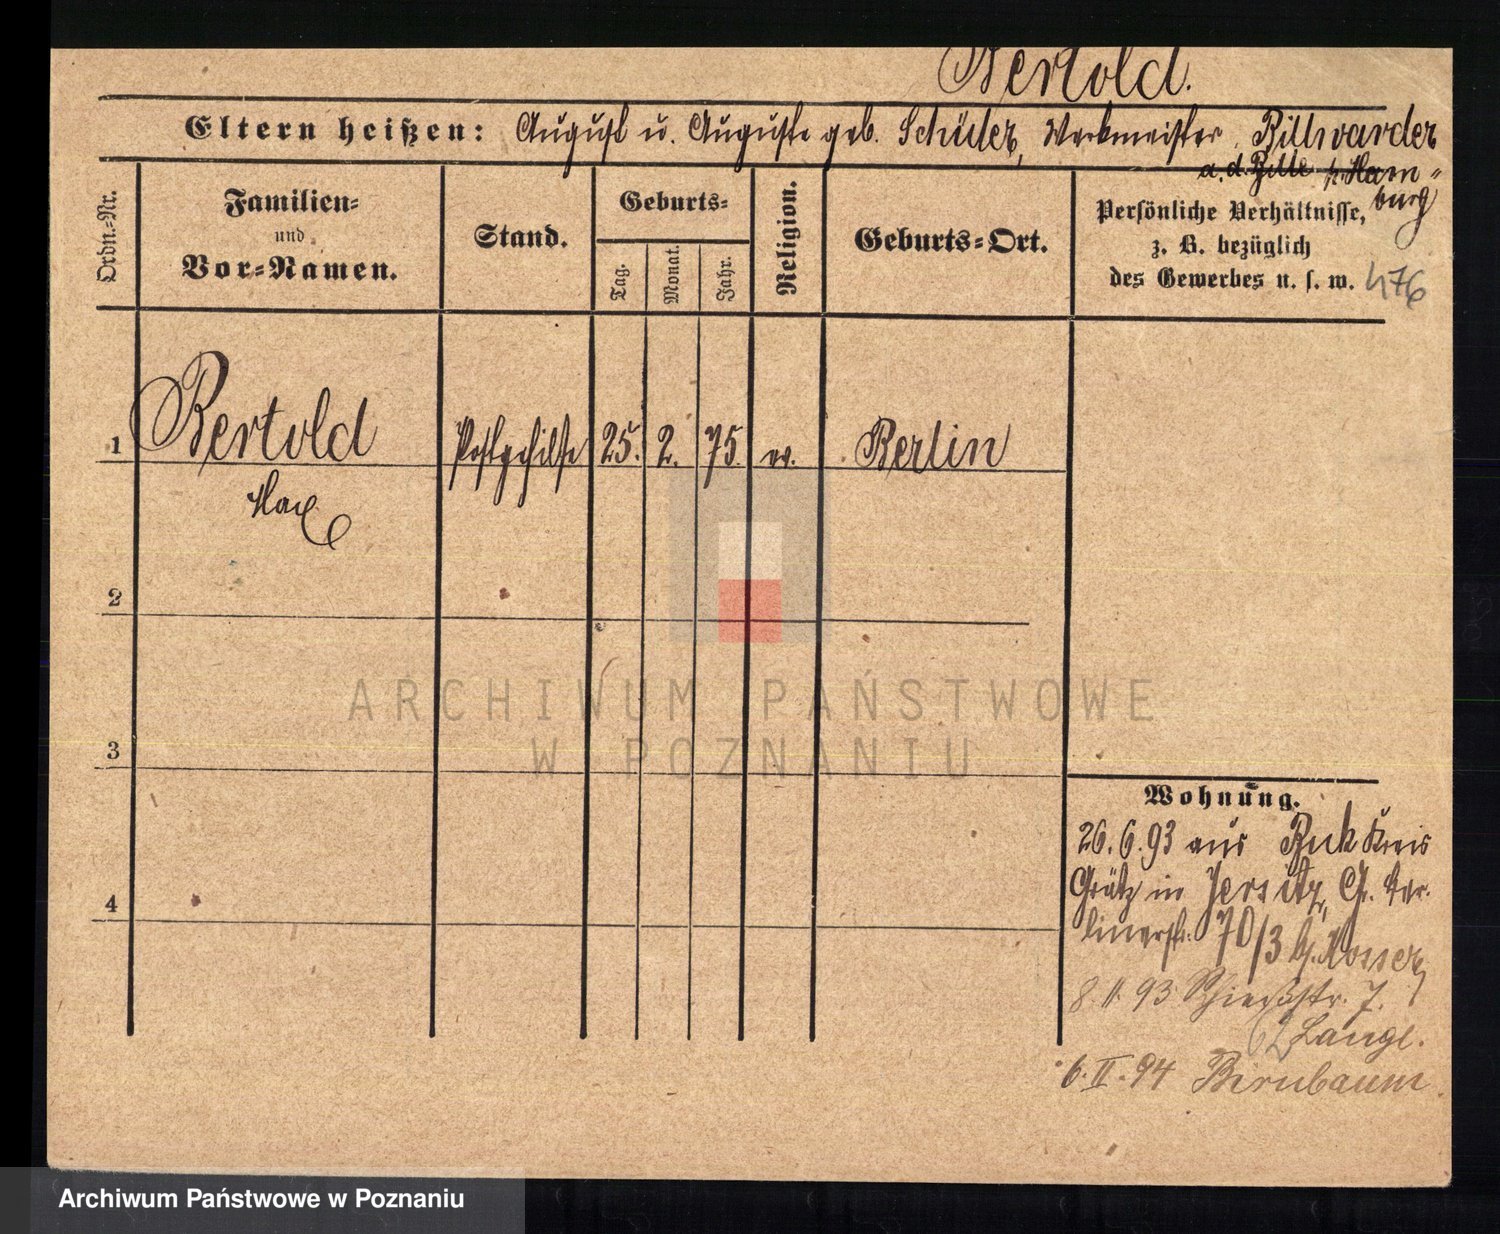 Bertold.
Eltern heißen: August u. Auguste geb. Schüler, Werkmeister, Billwarder
a. d. Bille b. Ham-
burg
Ordn.-Nr.
Familien-
und
Vor-Namen.
Stand.
Geburts-
Tag.
Monat.
Jahr.
Religion.
Geburts-Ort.
Persönliche Verhältnisse,
z. B. bezüglich
des Gewerbes u. s. w. 476
1 Bertold Postgehilfe 25. 2. 75. ev. Berlin
Max
2
3
4
ARCHIWUM PAŃSTWOWE
W POZNANIU
Wohnung.
26. 6. 93 aus Buk Kreis
Grätz in Jersitz, Gr. Ber-
linerstr. 70/3 b.
8. 11. 93 7.
b Lange.
6. II. 94 Birnbaum
Archiwum Państwowe w Poznaniu